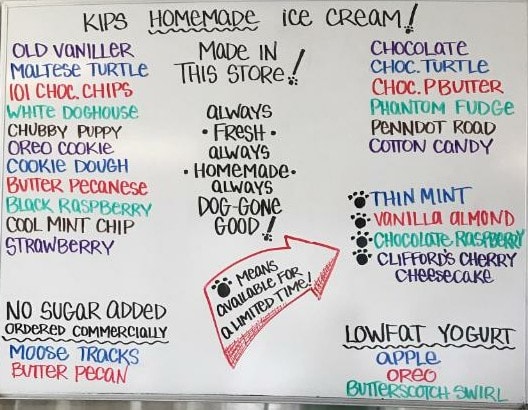 KIPS HOMEMADE ICE CREAM!
OLD VANILLER
MALTESE TURTLE
101 CHOC. CHIPS
WHITE DOGHOUSE
CHUBBY PUPPY
OREO COOKIE
COOKIE DOUGH
BUTTER PECANESE
BLACK RASPBERRY
COOL MINT CHIP
STRAWBERRY
NO SUGAR ADDED
ORDERED COMMERCIALLY
MOOSE TRACKS
BUTTER PECAN
MADE IN
THIS STORE!
ALWAYS
• FRESH •
ALWAYS
• HOMEMADE •
ALWAYS
DOG-GONE
GOOD!
MEANS
AVAILABLE FOR
A LIMITED TIME!
CHOCOLATE
CHOC. TURTLE
CHOC. PBUTTER
PHANTOM FUDGE
PENNDOT ROAD
COTTON CANDY
THIN MINT
VANILLA ALMOND
CHOCOLATE RASPBERRY
CLIFFORD'S CHERRY
CHEESECAKE
LOWFAT YOGURT
APPLE
OREO
BUTTERSCOTCH SWIRL